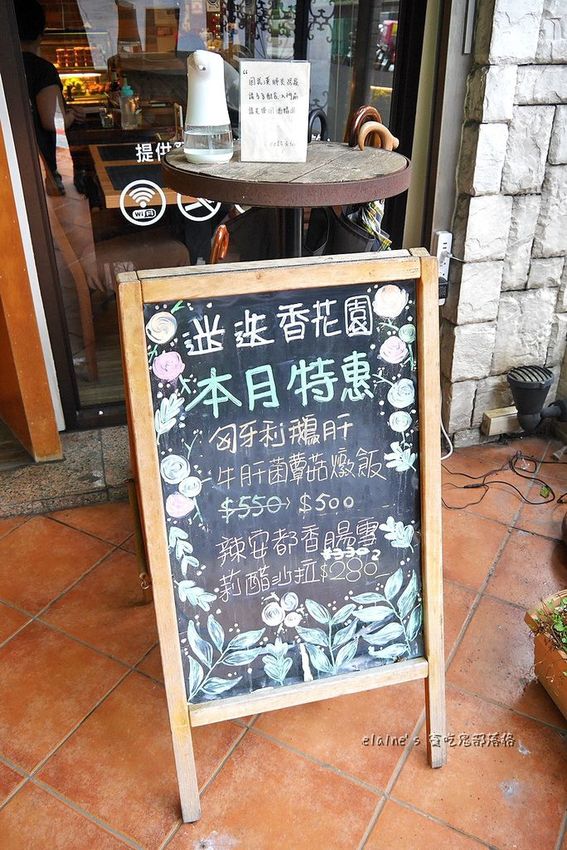 提供
WiFi
迷迭香花園
本月特惠
匈牙利鵝肝
牛肝菌蕈菇燉飯
$550 $500
辣安都香腸雪
$330
莉醋沙拉$280
elaine's 貪吃鬼部落格